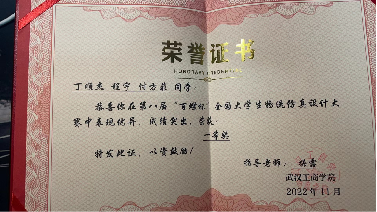 荣誉证书
HONORARY CREDENTIAL
同学:
恭喜你在第八届"百蝶杯"全国大学生物流仿真设计大
赛中表现优异,成绩突出,荣获
一等奖
特发此证,以资鼓励!
指导老师:
武汉工商学院
2022年11月